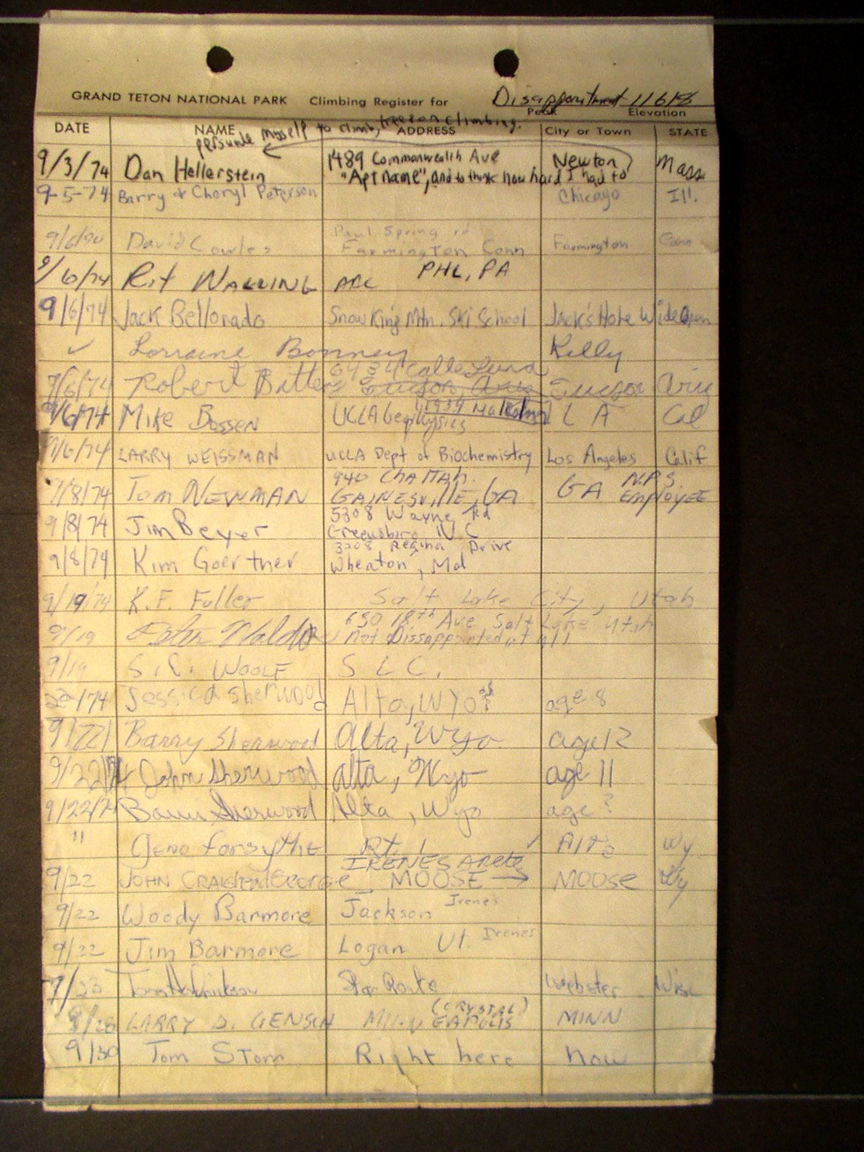 GRAND TETON NATIONAL PARK Climbing Register for Disappointment 11618
Peak Elevation
DATE NAME ADDRESS City or Town STATE
persuade myself to climb, climbing.
9/3/74 Dan Hellerstein 1489 Commonwealth Ave Newton Mass
"Apt name", and to think how hard I had to
9-5-74 Barry & Cheryl Peterson Chicago Ill.
Paul Spring rd
David Cowles Farmington Conn Farmington Conn
9/6/74 Rit WALLING PHL, PA
9/6/74 Jack Bellorado Snow King Mtn. Ski School Jack's Hole Wide Open
✓ Lorraine Bonney Kelly
9/6/74 Robert
9/6/74 Mike Bossen UCLA Geophysics L A Cal
9/6/74 LARRY WEISSMAN UCLA Dept of Biochemistry Los Angeles Calif
940
9/8/74 Tom NEWMAN GAINESVILLE, GA GA N.P.S. Employee
5308 Wayne Rd
9/8/74 Jim Beyer Greensboro N C
Regina Drive
9/8/74 Kim Goertner Wheaton, Md
9/19/74 K.F. Fuller Salt Lake City, Utah
650 18th Ave Salt Lake Utah
9/19 Not Dissappointed at all
9/19 S.C. WOOLF S L C.
Jessica Sherwood Alta, Wyo age 8
9/22 Barry Sherwood Alta, Wyo age 12
9/22/74 John Sherwood alta, Wyo age 11
9/22/74 Sherwood Alta, Wyo age ?
" Gene Forsythe Rt. 1 Alta Wy
IRENES ARETE
9/22 JOHN CRAIGHEAD George MOOSE → MOOSE Wy
9/22 Woody Barmore Jackson Irene's
9/22 Jim Barmore Logan Ut. Irenes
9/23 Tom Star Route Webster Wisc
(CRYSTAL)
LARRY D. GENSCH MINNEAPOLIS MINN
9/30 Tom Storm Right here Now